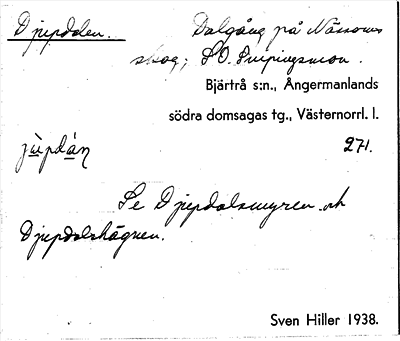 Djupdalen. Dalgång på Nässoms
skog; SO. Snipingsmon.
Bjärtrå s:n., Ångermanlands
södra domsagas tg., Västernorrl. l.
271.
Se Djupdalsmyren och
Djupdalshägnen.
Sven Hiller 1938.